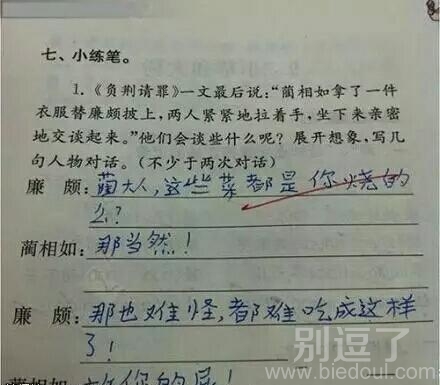 七、小练笔。
1.《负荆请罪》一文最后说：“蔺相如拿了一件
衣服替廉颇披上，两人紧紧地拉着手，坐下来亲密
地交谈起来。”他们会谈些什么呢？展开想象，写几
句人物对话。（不少于两次对话）
廉　颇：蔺大人，这些菜都是你烧的
么？
蔺相如：那当然！
廉　颇：那也难怪，都难吃成这样
了！
蔺相如：放你的屁！
别逗了
www.biedoul.com